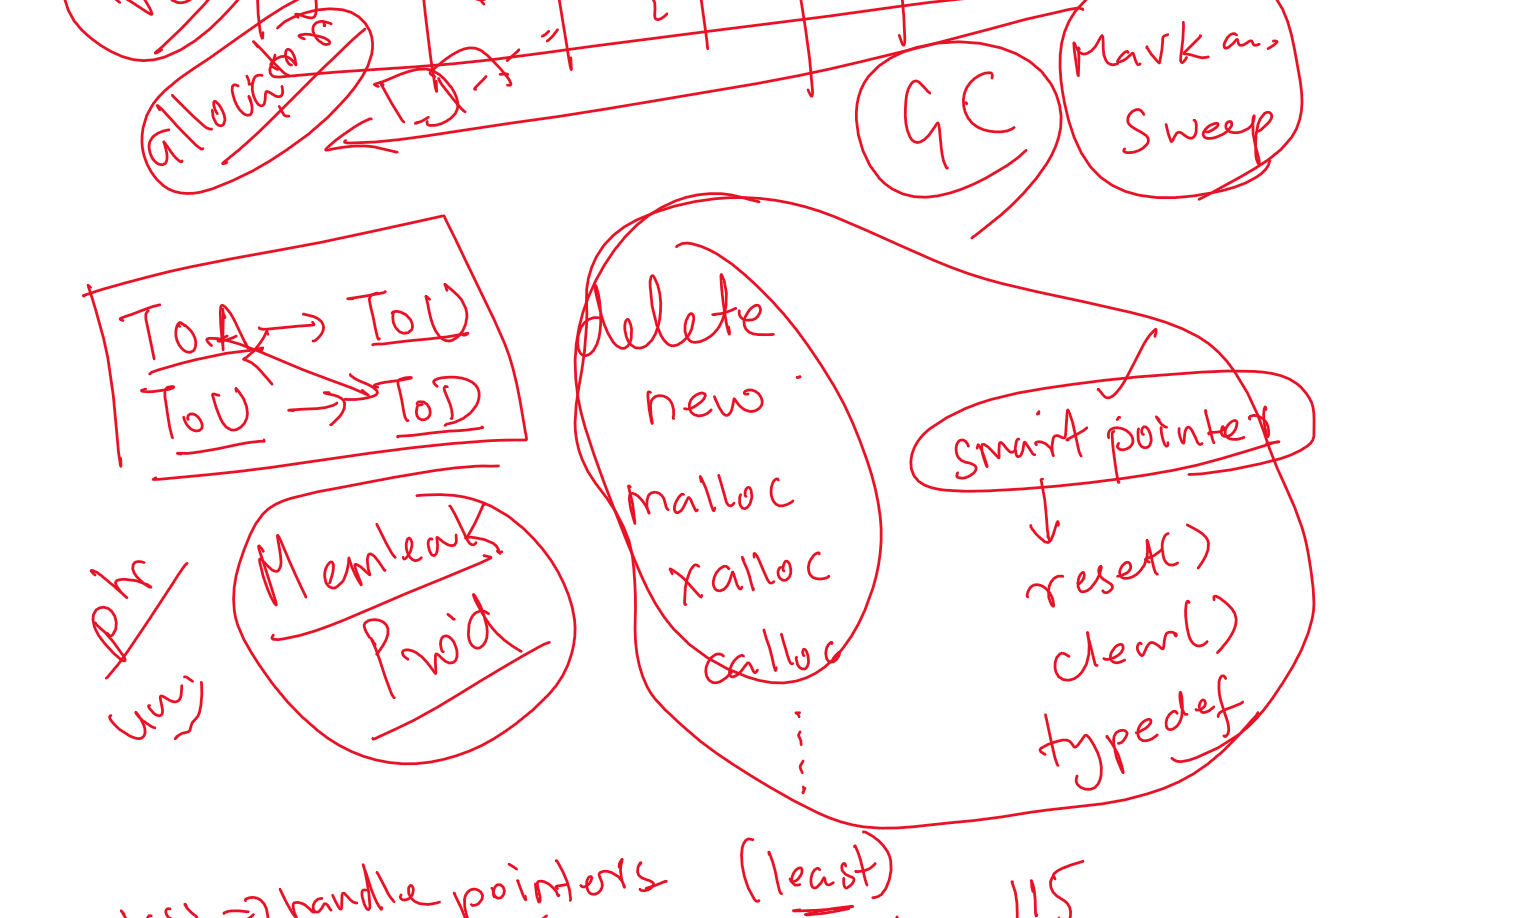 allocators
GC
Mark an
Sweep
ToA → ToU
ToU → ToD
delete
new
malloc
xalloc
calloc
smart pointer
reset()
clear()
typedef
Memleak
Prod
⇒ handle pointers (least)
115